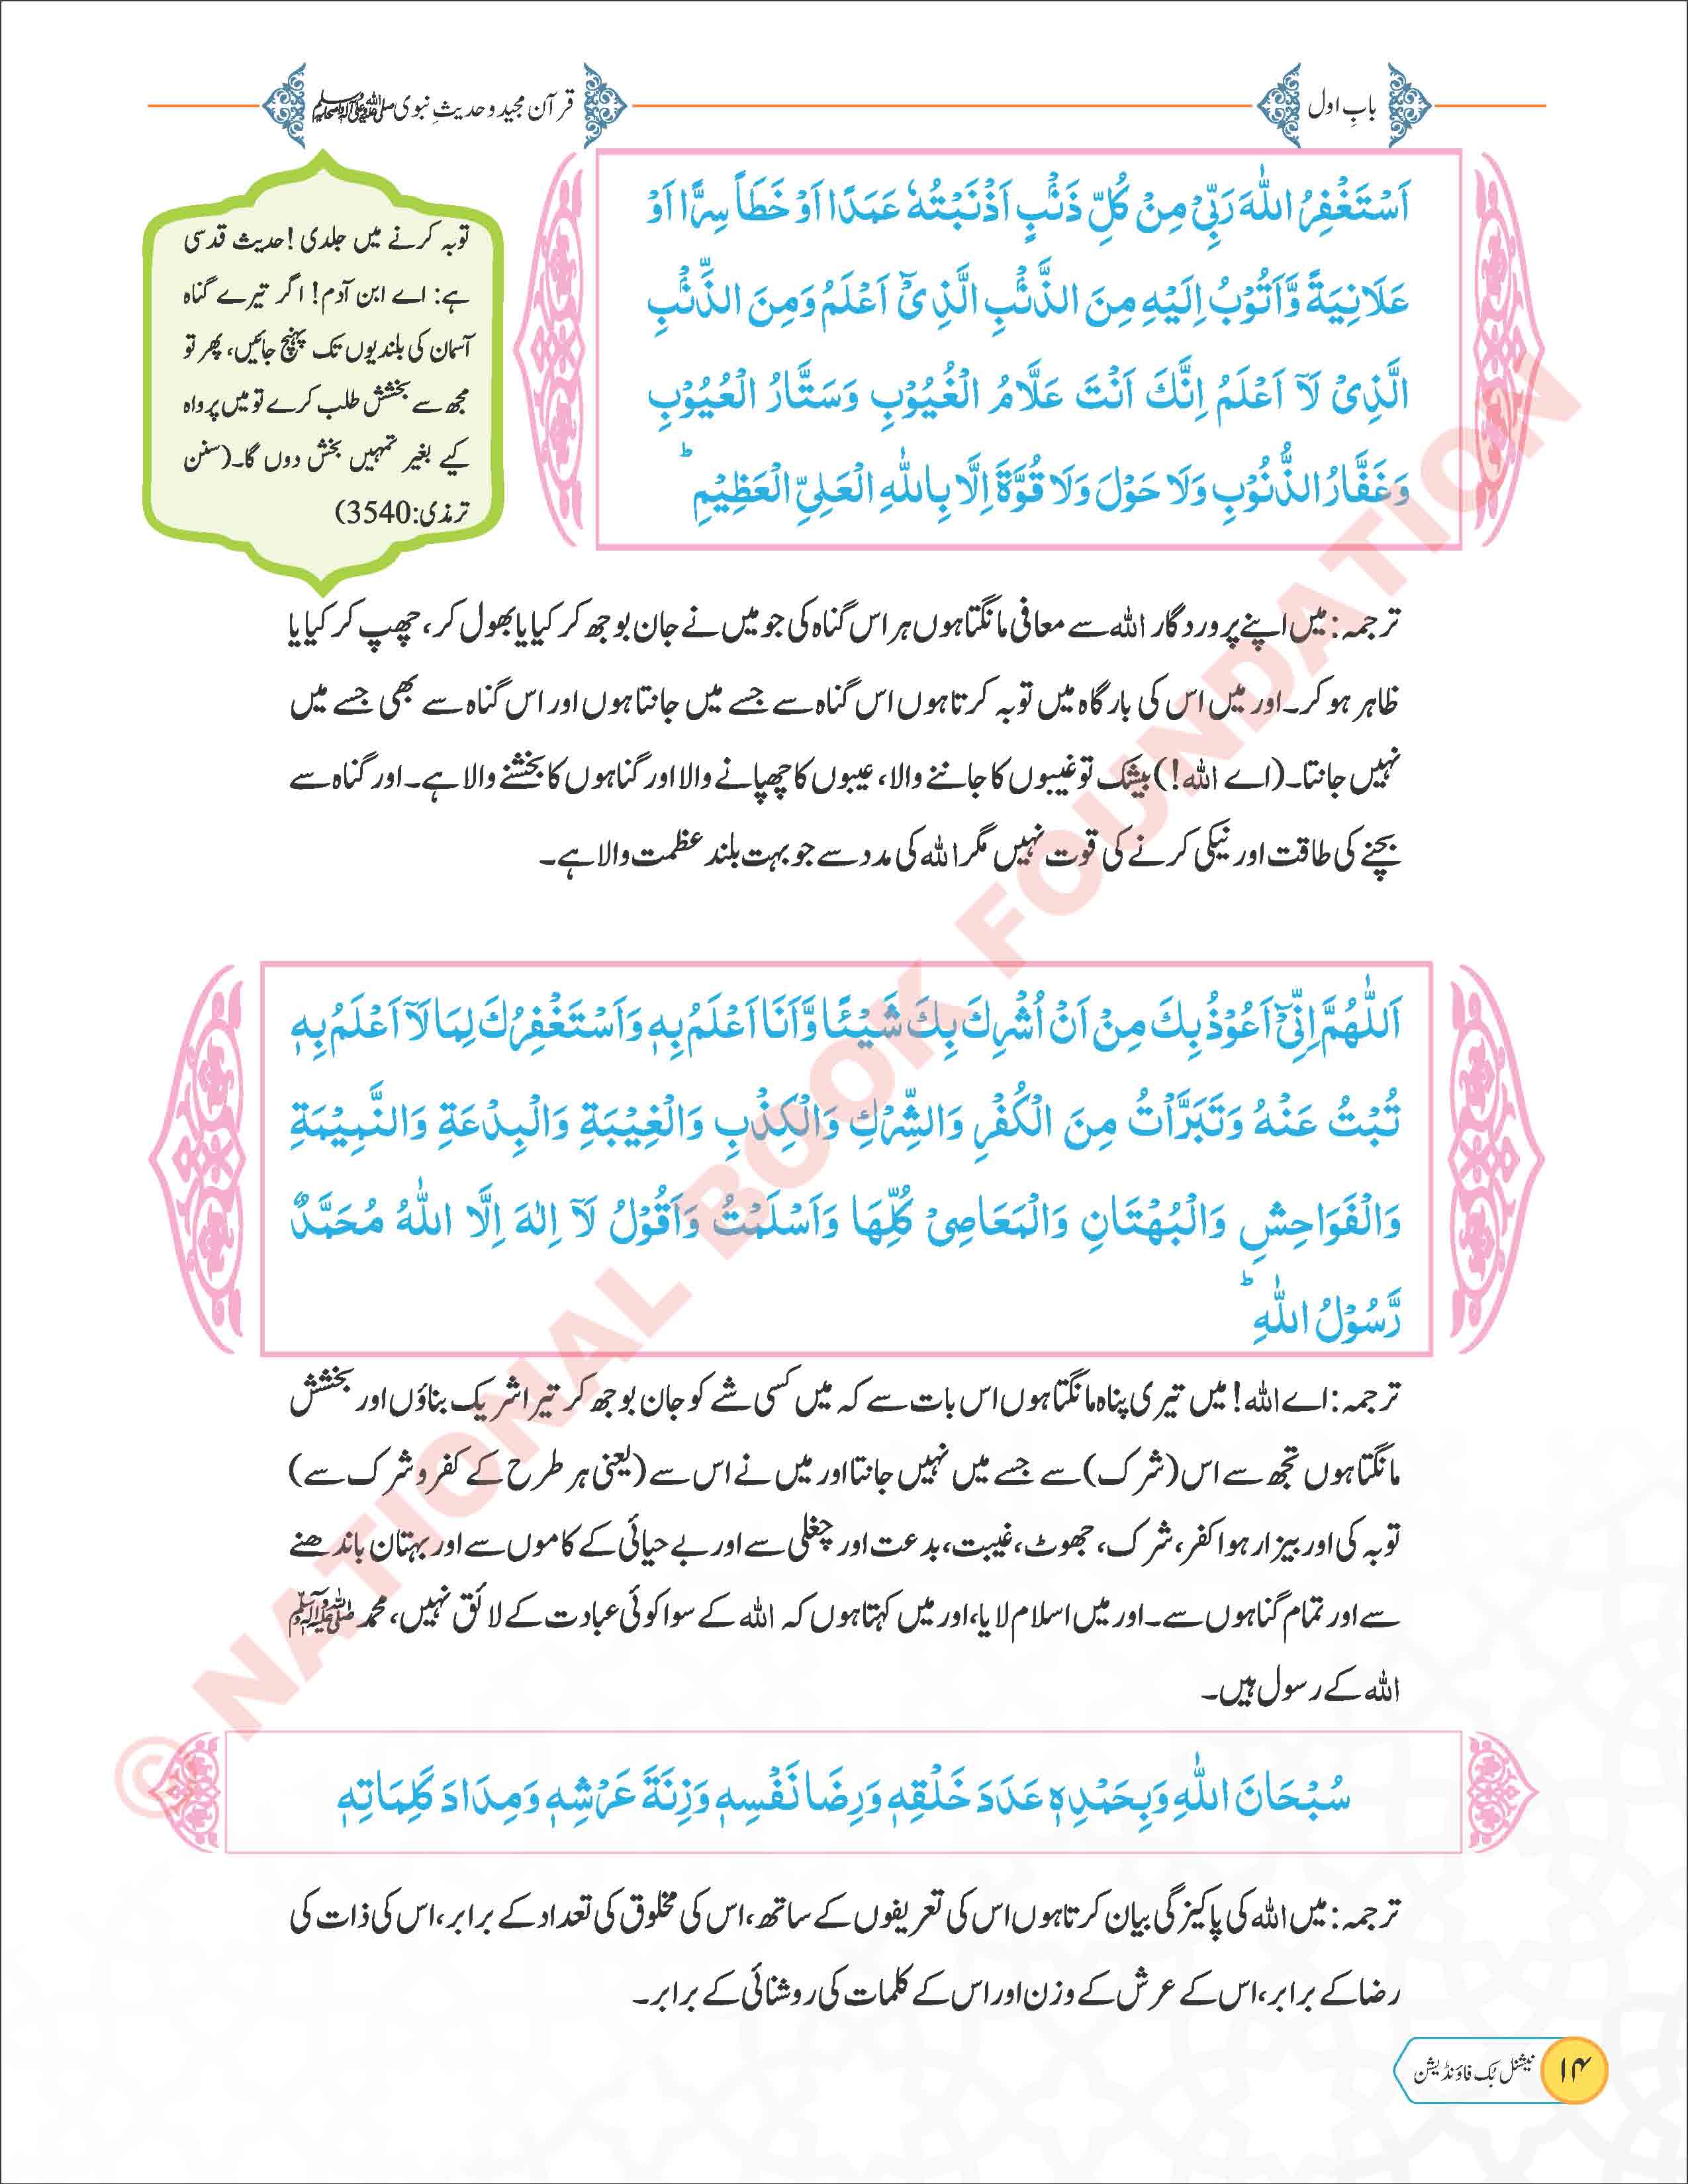 بابِ اول
قرآن مجید و حدیثِ نبوی صلی اللہ علیہ وسلم
اَسْتَغْفِرُ اللّٰهَ رَبِّیْ مِنْ کُلِّ ذَنْۢبٍ اَذْنَبْتُهٗ عَمَدًا اَوْ خَطَاً سِرًّا اَوْ
عَلَانِیَةً وَّاَتُوْبُ اِلَیْهِ مِنَ الذَّنْۢبِ الَّذِیْٓ اَعْلَمُ وَمِنَ الذَّنْۢبِ
الَّذِیْ لَآ اَعْلَمُ اِنَّكَ اَنْتَ عَلَّامُ الْغُیُوْبِ وَسَتَّارُ الْعُیُوْبِ
وَغَفَّارُ الذُّنُوْبِ وَلَا حَوْلَ وَلَا قُوَّةَ اِلَّا بِاللّٰهِ الْعَلِیِّ الْعَظِیْمِ ؕ
توبہ کرنے میں جلدی! حدیث قدسی
ہے: اے ابن آدم! اگر تیرے گناہ
آسمان کی بلندیوں تک پہنچ جائیں، پھر تو
مجھ سے بخشش طلب کرے تو میں پرواہ
کیے بغیر تمہیں بخش دوں گا۔(سنن
ترمذی:3540)
ترجمہ: میں اپنے پروردگار اللہ سے معافی مانگتا ہوں ہر اس گناہ کی جو میں نے جان بوجھ کر کیا یا بھول کر، چھپ کر کیا یا
ظاہر ہو کر۔ اور میں اس کی بارگاہ میں توبہ کرتا ہوں اس گناہ سے جسے میں جانتا ہوں اور اس گناہ سے بھی جسے میں
نہیں جانتا۔ (اے اللہ!) بیشک تو غیبوں کا جاننے والا، عیبوں کا چھپانے والا اور گناہوں کا بخشنے والا ہے۔ اور گناہ سے
بچنے کی طاقت اور نیکی کرنے کی قوت نہیں مگر اللہ کی مدد سے جو بہت بلند عظمت والا ہے۔
اَللّٰهُمَّ اِنِّیْٓ اَعُوْذُ بِكَ مِنْ اَنْ اُشْرِكَ بِكَ شَیْـًٔا وَّاَنَا اَعْلَمُ بِهٖ وَاَسْتَغْفِرُكَ لِمَا لَآ اَعْلَمُ بِهٖ
تُبْتُ عَنْهُ وَتَبَرَّاْتُ مِنَ الْكُفْرِ وَالشِّرْكِ وَالْكِذْبِ وَالْغِیْبَةِ وَالْبِدْعَةِ وَالنَّمِیْمَةِ
وَالْفَوَاحِشِ وَالْبُهْتَانِ وَالْمَعَاصِیْ كُلِّهَا وَاَسْلَمْتُ وَاَقُوْلُ لَآ اِلٰهَ اِلَّا اللّٰهُ مُحَمَّدٌ
رَّسُوْلُ اللّٰهِ ؕ
ترجمہ: اے اللہ! میں تیری پناہ مانگتا ہوں اس بات سے کہ میں کسی شے کو جان بوجھ کر تیرا شریک بناؤں اور بخشش
مانگتا ہوں تجھ سے اس (شرک) سے جسے میں نہیں جانتا اور میں نے اس سے (یعنی ہر طرح کے کفر و شرک سے)
توبہ کی اور بیزار ہوا کفر، شرک، جھوٹ، غیبت، بدعت اور چغلی سے اور بے حیائی کے کاموں سے اور بہتان باندھنے
سے اور تمام گناہوں سے۔ اور میں اسلام لایا، اور میں کہتا ہوں کہ اللہ کے سوا کوئی عبادت کے لائق نہیں، محمد ﷺ
اللہ کے رسول ہیں۔
سُبْحَانَ اللّٰهِ وَبِحَمْدِهٖ عَدَدَ خَلْقِهٖ وَرِضَا نَفْسِهٖ وَزِنَةَ عَرْشِهٖ وَمِدَادَ كَلِمَاتِهٖ
ترجمہ: میں اللہ کی پاکیزگی بیان کرتا ہوں اس کی تعریفوں کے ساتھ، اس کی مخلوق کی تعداد کے برابر، اس کی ذات کی
رضا کے برابر، اس کے عرش کے وزن اور اس کے کلمات کی روشنائی کے برابر۔
۱۴
نیشنل بُک فاؤنڈیشن
© NATIONAL BOOK FOUNDATION